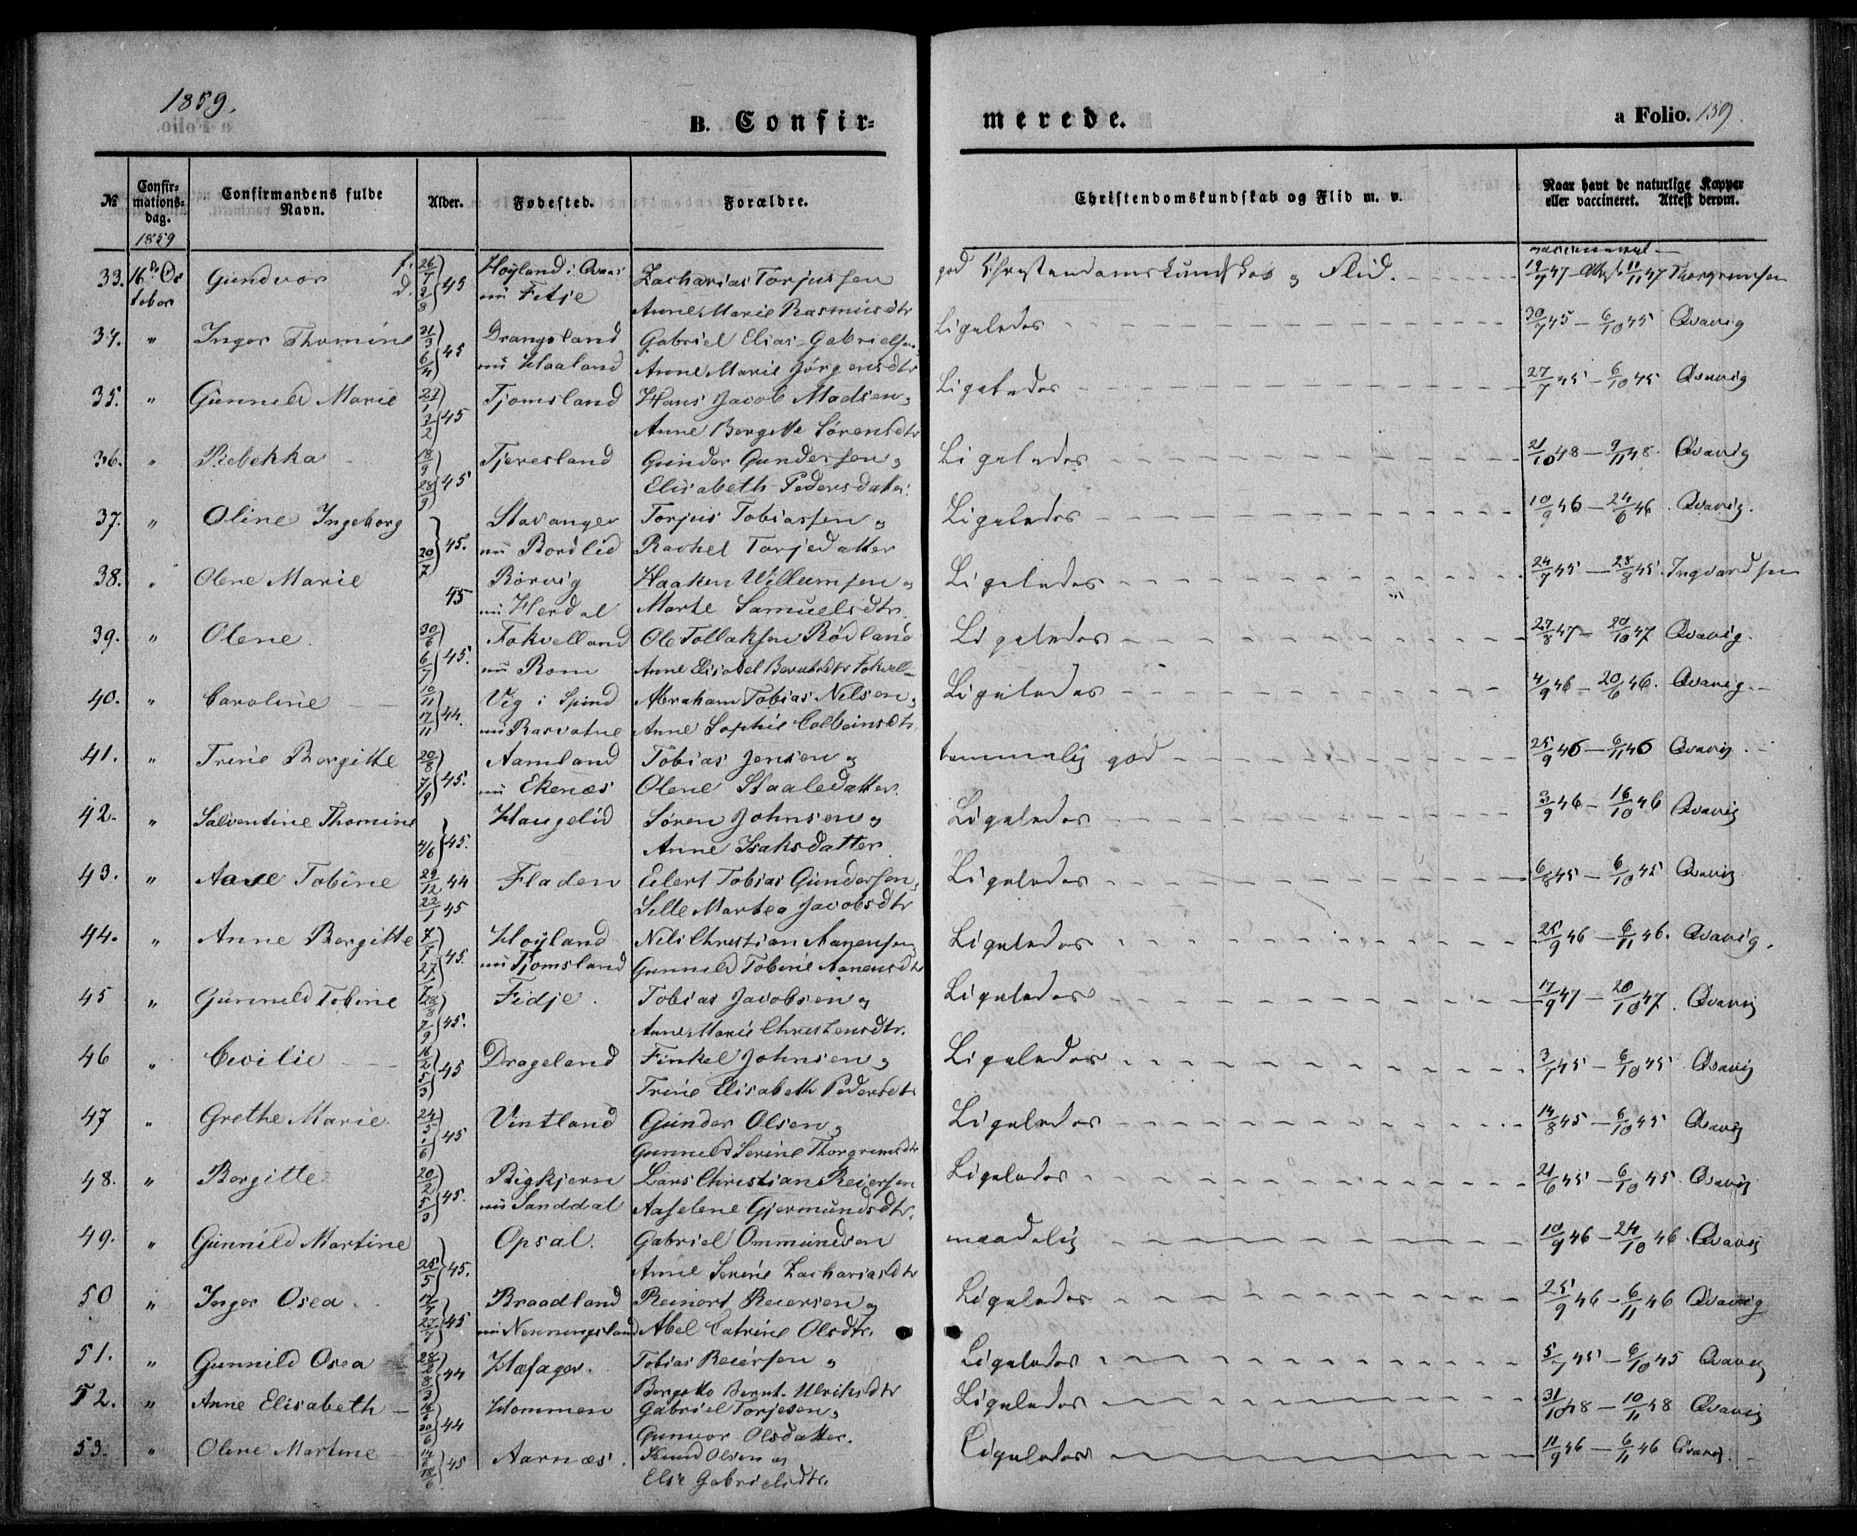 1859.
B. Confir= merede. a Folio. 159.
№ Confirmationsdag. 1859 Confirmandens fulde Navn. Alder. Fødested. Forældre. Christendomskundskab og Flid m. v. Naar havt de naturlige Kopper eller vaccineret. Attest derom.
33. 16de Octobor Gundvor f. 26/7 d. 3/8 45 Høyland i Qvaas nu Fitje Zacharias Torjussen Anne Marie Rasmusdtr god Christendomskundskab og Flid. 19/7 47 – Attest 11/11 47 Thorgrimsen
34. " Inger Thomine 21/3 6/4 45 Drangsland nu Haaland Gabriel Elias Gabrielsen Anne Marie Jørgensdtr Ligeledes 30/7 45 – 6/10 45 Qvavig
35. " Gunnild Marie 1 3/2 45 Tjomsland Hans Jacob Madsen og Anne Borgitte Sørensdtr Ligeledes 27/7 45 – 6/10 45 Qvavig
36. " Rebekka 18/9 28/9 45 Tjeresland Gunder Gundersen og Elisabeth Pedersdatter Ligeledes 21/10 48 – 9/11 48. Qvavig
37. " Oline Ingeborg 20/7 45. Stavanger nu Bordlid Torjus Tobiassen og Rachel Torjedatter Ligeledes 10/9 46 – 24/6 46 Qvavig.
38. " Olene Marie 45 Rørvig nu Herdal Haaken Willumsen og Marte Samuelsdtr. Ligeledes 24/7 45 – 28/8 45. Ingvardsen
39. " Olene. 30/6 6/7 45. Fokvelland nu Rom Ole Tollaksen Rødland Anne Elisabet Ligeledes 27/8 47 – 20/10 47 Qvavig.
40. " Caroline 10/11 17/11 44. Vig i Spind nu Barvatne Abraham Tobias Nilsen og Anne Sophie Colbeinsdtr Ligeledes 4/9 46 – 20/6 46. Qvavig.
41. " Trine Borgitte 20/8 7/9 45. Aamland nu Ekenæs Tobias Jensen og Olene Staaledatter. temmelig god 25/9 46 – 6/11 46 Qvavig.
42. " Salventine Thomine 4/6 45. Haugelid Søren Johnsen og Anne Isaksdatter Ligeledes 3/9 46 – 16/10 46 Qvavig
43. " Aase Tobine 29/12 44 22/1 45 Fladen Eilert Tobias Gundersen, Sille Martea Jacobsdtr Ligeledes 6/8 45 – 6/10 45 Qvavig
44. " Anne Borgitte 7/7 27/7 45. Høyland nu Tjomsland Nils Christian Aanensen Gunnild Tobine Aanensdtr Ligeledes 25/9 46 – 6/11 46. Qvavig.
45 " Gunnild Tobine 28/8 7/9 45. Fidje. Tobias Jacobsen og Anne Marie Christensdtr. Ligeledes 17/9 47 – 20/10 47. Qvavig
46 " Cecilie 16/2 5/3 45 Drageland Finkel Johnsen og Trine Elisabeth Pedersdtr Ligeledes 3/7 45 – 6/10 45 Qvavig
47 " Grethe Marie. 24/5 1/6 45 Vintland Gunder Olsen og Gunnild Serine Thorgrimsdtr Ligeledes 14/8 45 – 6/10 45 Qvavig
48. " Borgitte 20/2 5/3 45. Rigkjern nu Sanddal Lars Christian Reiersen Aaselene Gjermundsdtr. Ligeledes 21/6 45 – 6/10 45 Qvavig
49. " Gunnild Martine 25/5 45. Opsal. Gabriel Ommundsen Anne Serine Zachariasdtr maadelig 10/9 46 – 24/10 46. Qvavig
50 " Inger Osea 27/7 45 Braadland nu Nenningsland Reinert Reiersen og Abel Catrine Olsdtr. Ligeledes 25/9 46 – 6/11 46 Qvavig
51. " Gunnild Osea 44 Hæfager. Tobias Reiersen og Borgitte Bernt. Ulriksdtr Ligeledes 5/7 45 – 6/10 45 Qvavig
52. " Anne Elisabeth 44 Hommen Gabriel Torjesen, Gunvor Olsdatter. Ligeledes 31/10 48 – 10/11 48 Qvavig
53. " Olene Martine 45 Aarnæs. Knud Olsen og Else Gabrielsdtr. Ligeledes 11/9 46 – 6/11 46 Qvavig.